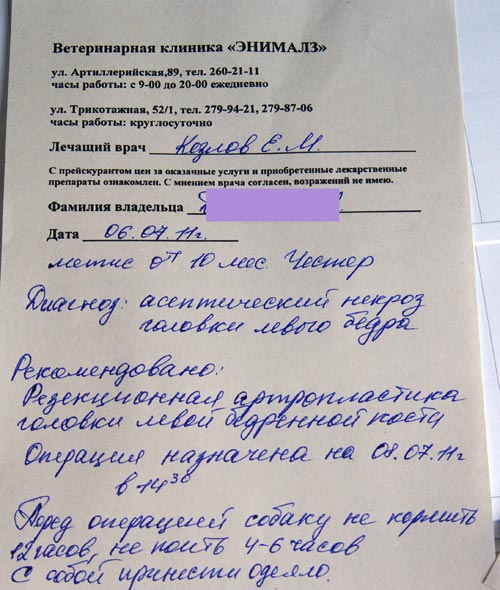 Ветеринарная клиника «ЭНИМАЛЗ»
ул. Артиллерийская,89, тел. 260-21-11
часы работы: с 9-00 до 20-00 ежедневно
ул. Трикотажная, 52/1, тел. 279-94-21, 279-87-06
часы работы: круглосуточно
Лечащий врач Козлов Е.М.
С прейскурантом цен за оказанные услуги и приобретенные лекарственные
препараты ознакомлен. С мнением врача согласен, возражений не имею.
Фамилия владельца
Дата 06.07.11г.
метис от 10 мес. Честер
Диагноз: асептический некроз
головки левого бедра
Рекомендовано:
Резекционная артропластика
головки левой бедренной кости
Операция назначена на 08.07.11г
в 14³⁰
Перед операцией собаку не кормить
12 часов, не поить 4-6 часов
С собой принести одеяло.